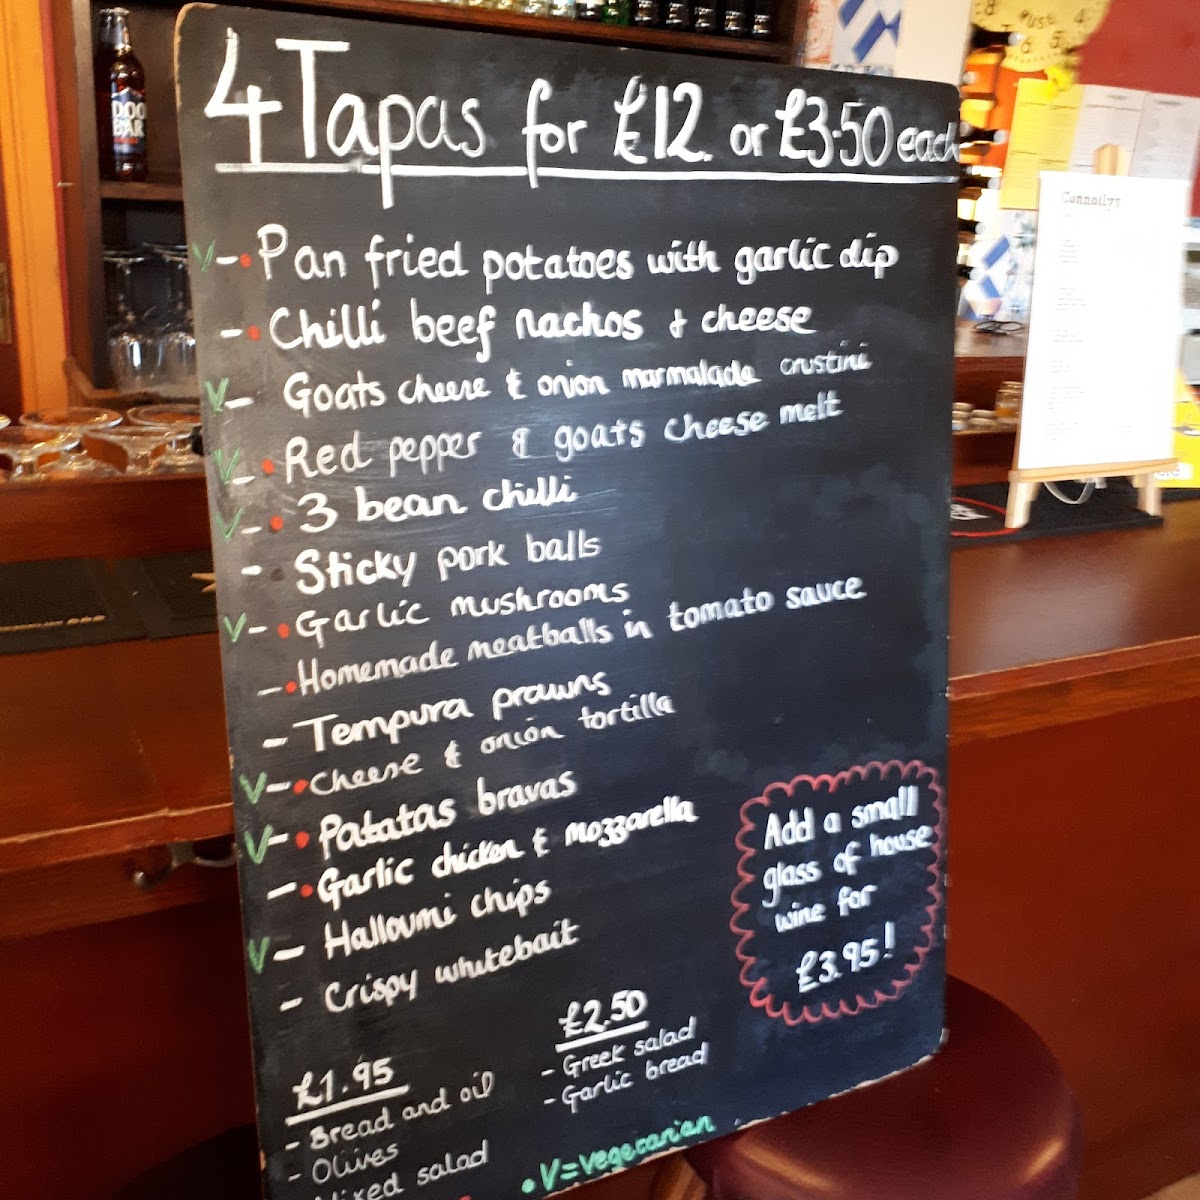 4 Tapas for £12. or £3.50 each
V - Pan fried potatoes with garlic dip
- Chilli beef nachos & cheese
V - Goats cheese & onion marmalade crustini
V - Red pepper & goats cheese melt
V - 3 bean chilli
- Sticky pork balls
V - Garlic mushrooms
- Homemade meatballs in tomato sauce
- Tempura prawns
V - Cheese & onion tortilla
V - Patatas bravas
- Garlic chicken & mozzarella
V - Halloumi chips
- Crispy whitebait
Add a small
glass of house
wine for
£3.95!
£2.50
- Greek salad
- Garlic bread
£1.95
- Bread and oil
- Olives
Mixed salad
• V = vegetarian
DOO
BAR
Connollys